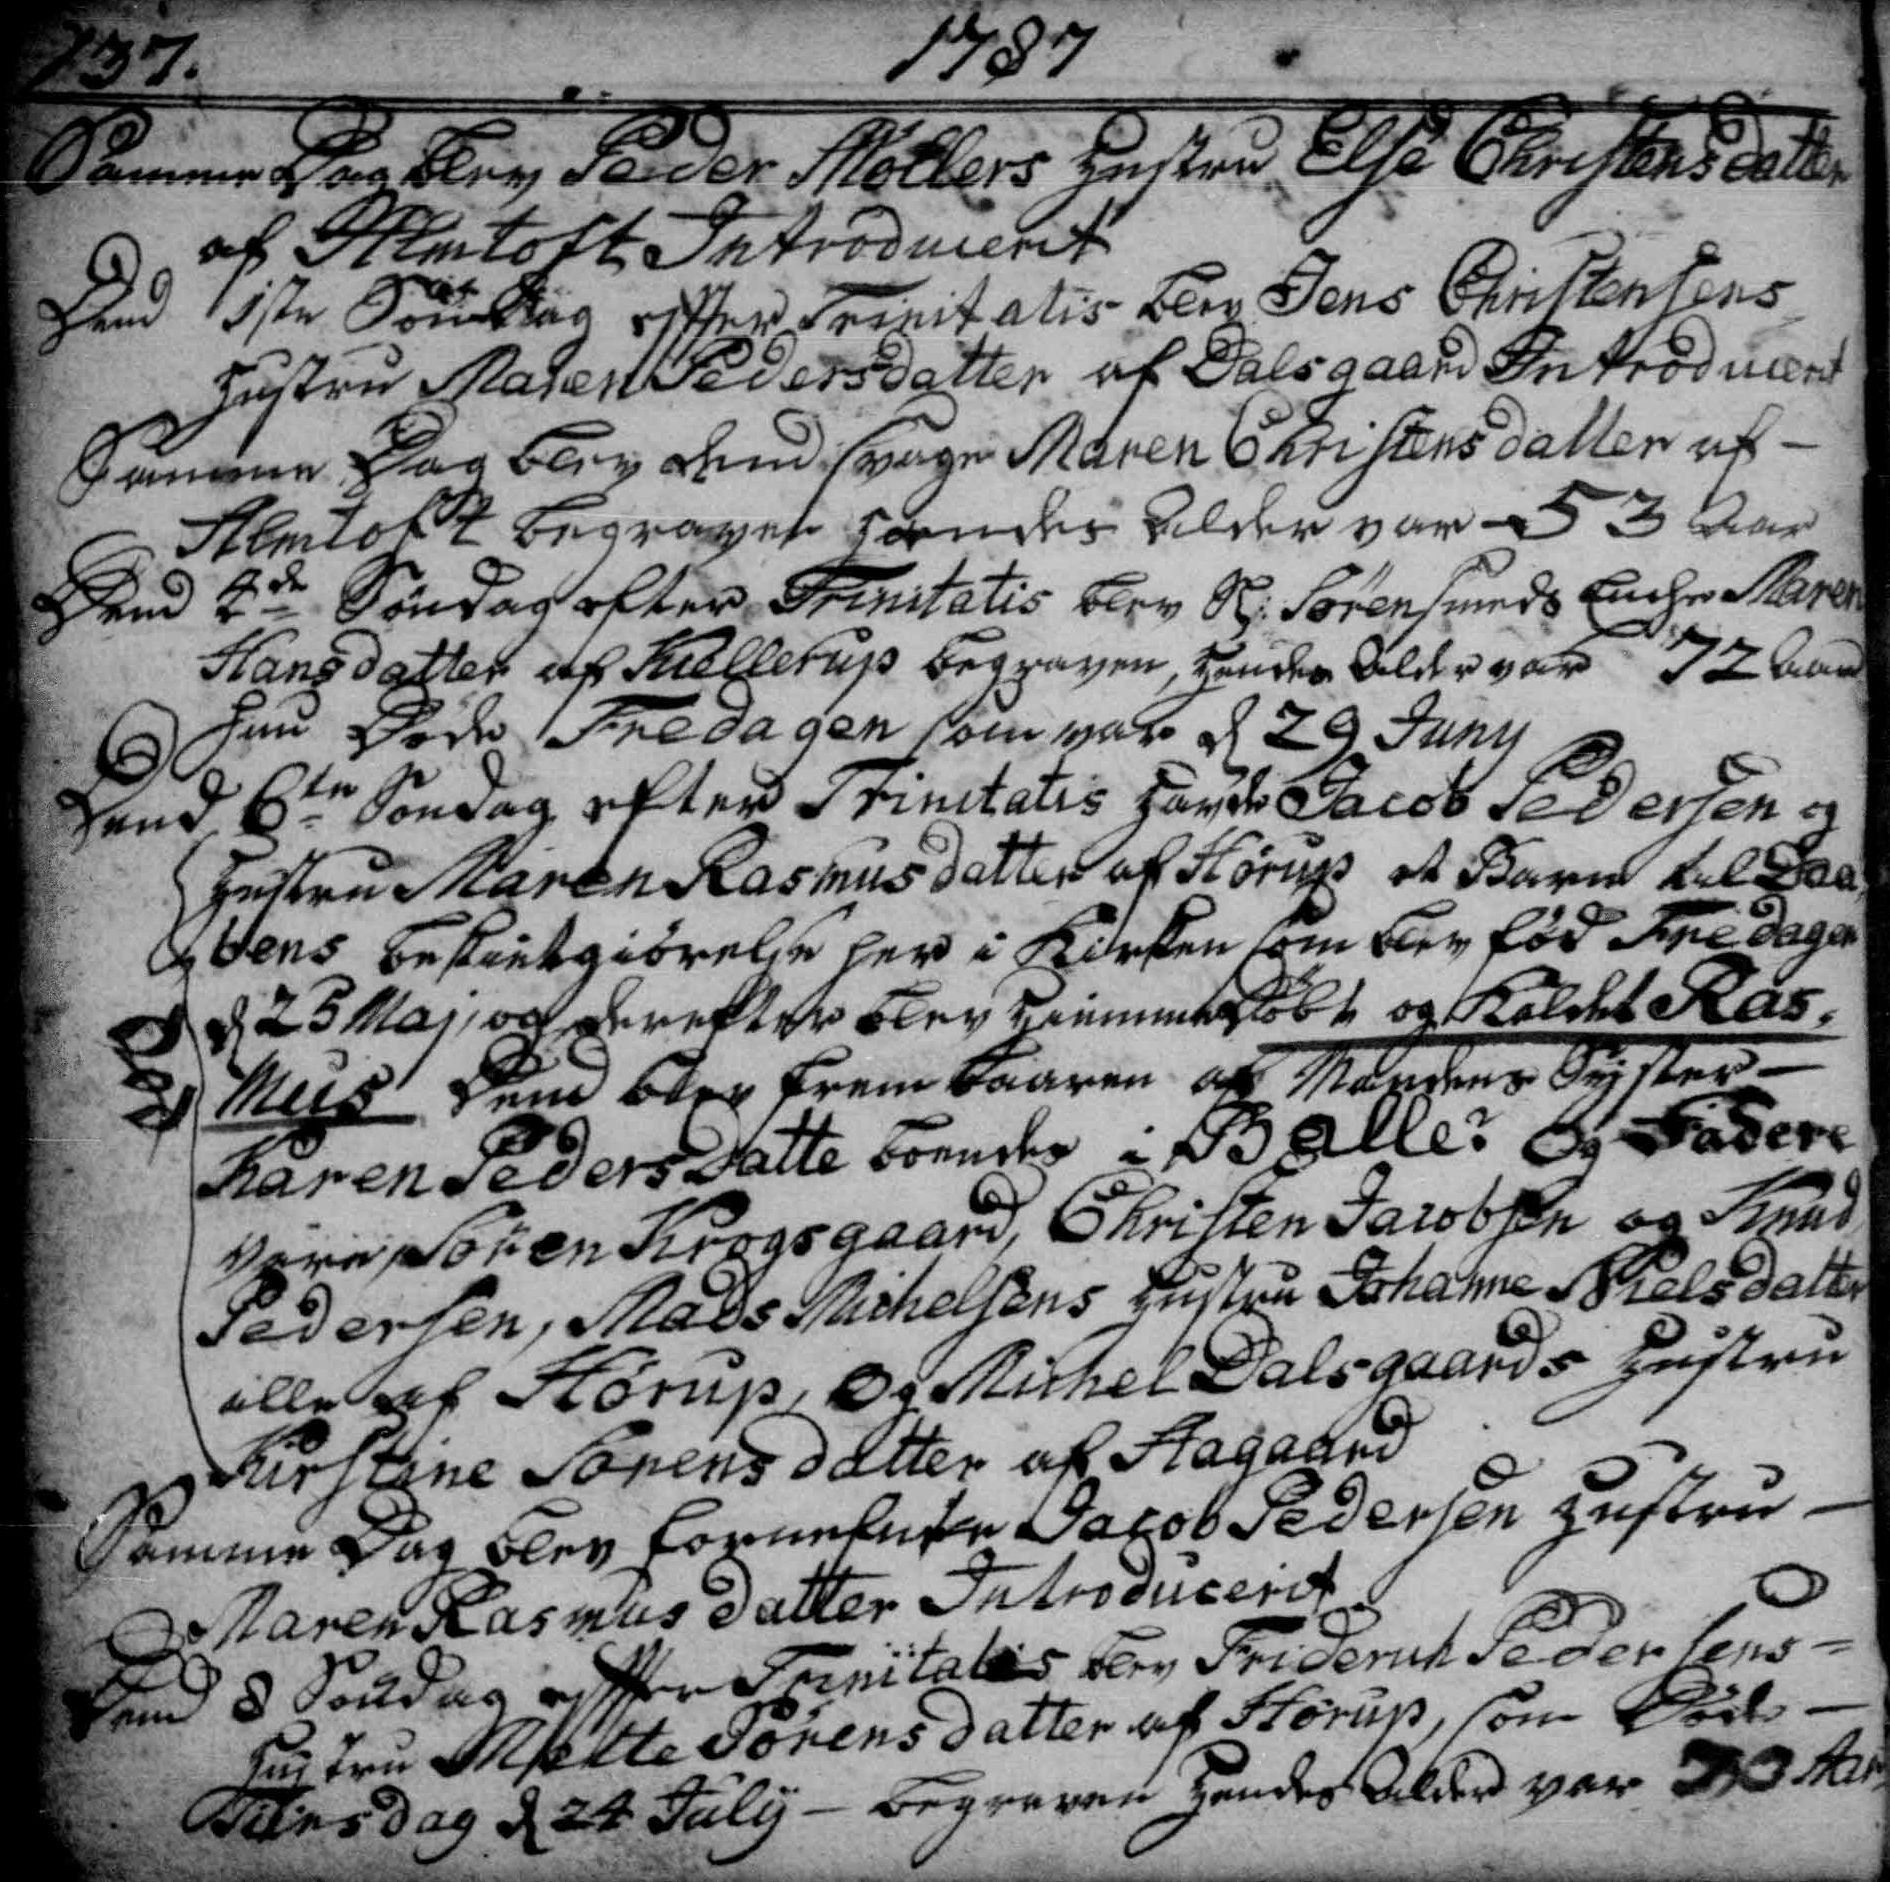 137.
1787
Samme Dag blev Peder Möllers Hustru Else Christensdatter
af Almtoft Introduceret
Dend 1ste Söndag efter Trinitatis blev Jens Christensens
Hustru Maren Pedersdatter af Dalsgaard Introduceret
Samme Dag blev dend svage Maren Christensdatter af –
Almtoft begraven hendes Alder var – 53 Aar
Dend 4de Söndag efter Trinitatis blev Sören Smeds Enche Maren
Hansdatter af Kiellerup begraven, hendes Alder var 72 Aar
hun Döde Fredagen som var d 29 Juny
Dend 6te Söndag efter Trinitatis havde Jacob Pedersen og
Hustru Maren Rasmusdatter af Hörup et Barn til Daa,
bens bekiendtgiörelse her i Kirken som blev föd Fredagen
d 25 Maj, og derefter blev hiemmedöbt og Kaldet Ras,
mus Dend blev frembaaren af Mandens Syster –
Karen Peders datte boendes i Balle? Og Fadere
vare, Sören Krogsgaard, Christen Jacobsen og Knud
Pedersen, Mads Michelsens Hustru Johanne Nielsdatter
alle af Hörup, Og Michel Dalsgaards Hustru
Kirstine Sörensdatter af Aagaard
Samme Dag blev fornefnte Jacob Pedersen Hustru –
Maren Rasmusdatter Introduceret
Dend 8 Söndag efter Trinitatis blev Friderich Pedersens =
Hustru Mette Sörensdatter af Hörup, som Döde –
Tiirsdag d 24 July – begraven hendes Alder var Aar